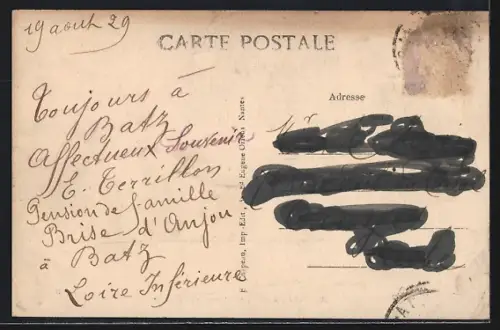 19 aout 29
CARTE POSTALE
Toujours à
Batz
Affectueux Souvenir
E. Terrillon
Pension de famille
Brise d'Anjou
à Batz
Loire Inférieure
Adresse
M